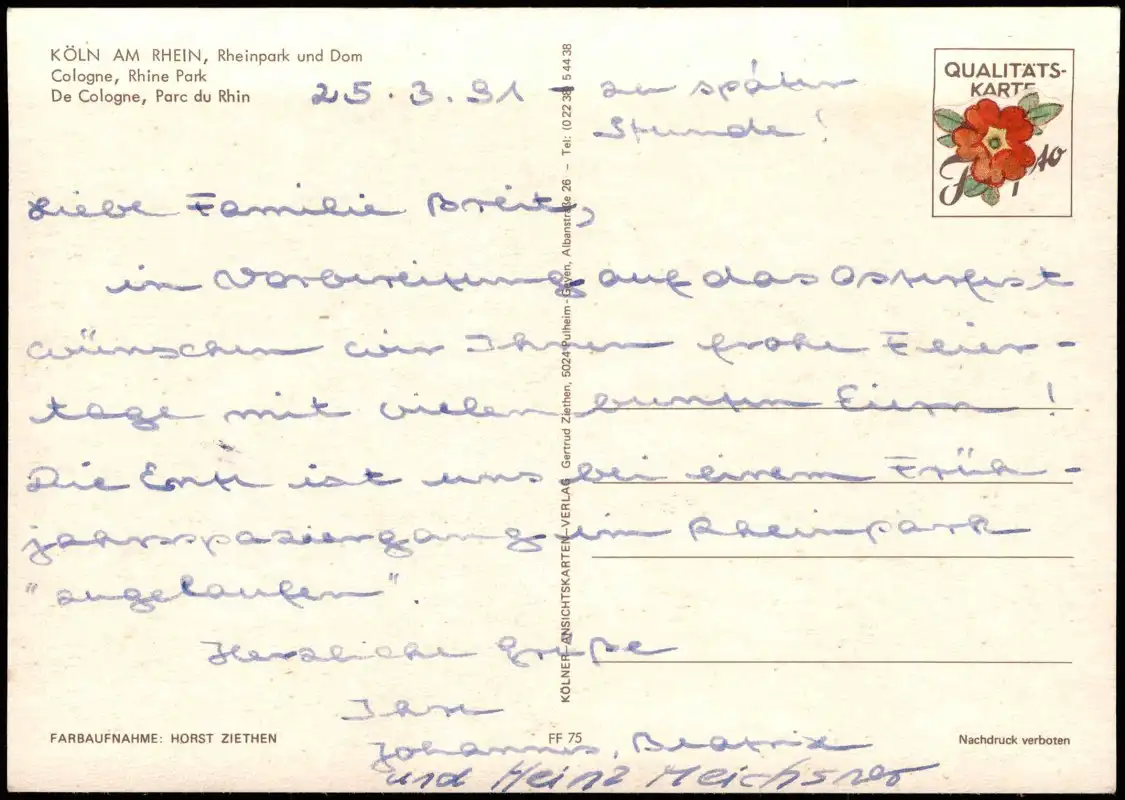 KÖLN AM RHEIN, Rheinpark und Dom
Cologne, Rhine Park
De Cologne, Parc du Rhin
QUALITÄTS-
KARTE
25.3.91 - zu später
Stunde!
Liebe Familie Breit,
in Vorbereitung auf das Osterfest
wünschen wir Ihnen frohe Feier-
tage mit vielen bunten Eiern!
Die Ente ist uns bei einem Früh-
jahrsspaziergang im Rheinpark
"angelaufen".
Herzliche Grüße
Ihre
Johannes, Beatrix
und Heinz Meichsner
KÖLNER-ANSICHTSKARTEN-VERLAG Gertrud Ziethen, 5024 Pulheim-Geyen, Albanstraße 26 - Tel: (02238) 5 44 38
FARBAUFNAHME: HORST ZIETHEN
FF 75
Nachdruck verboten